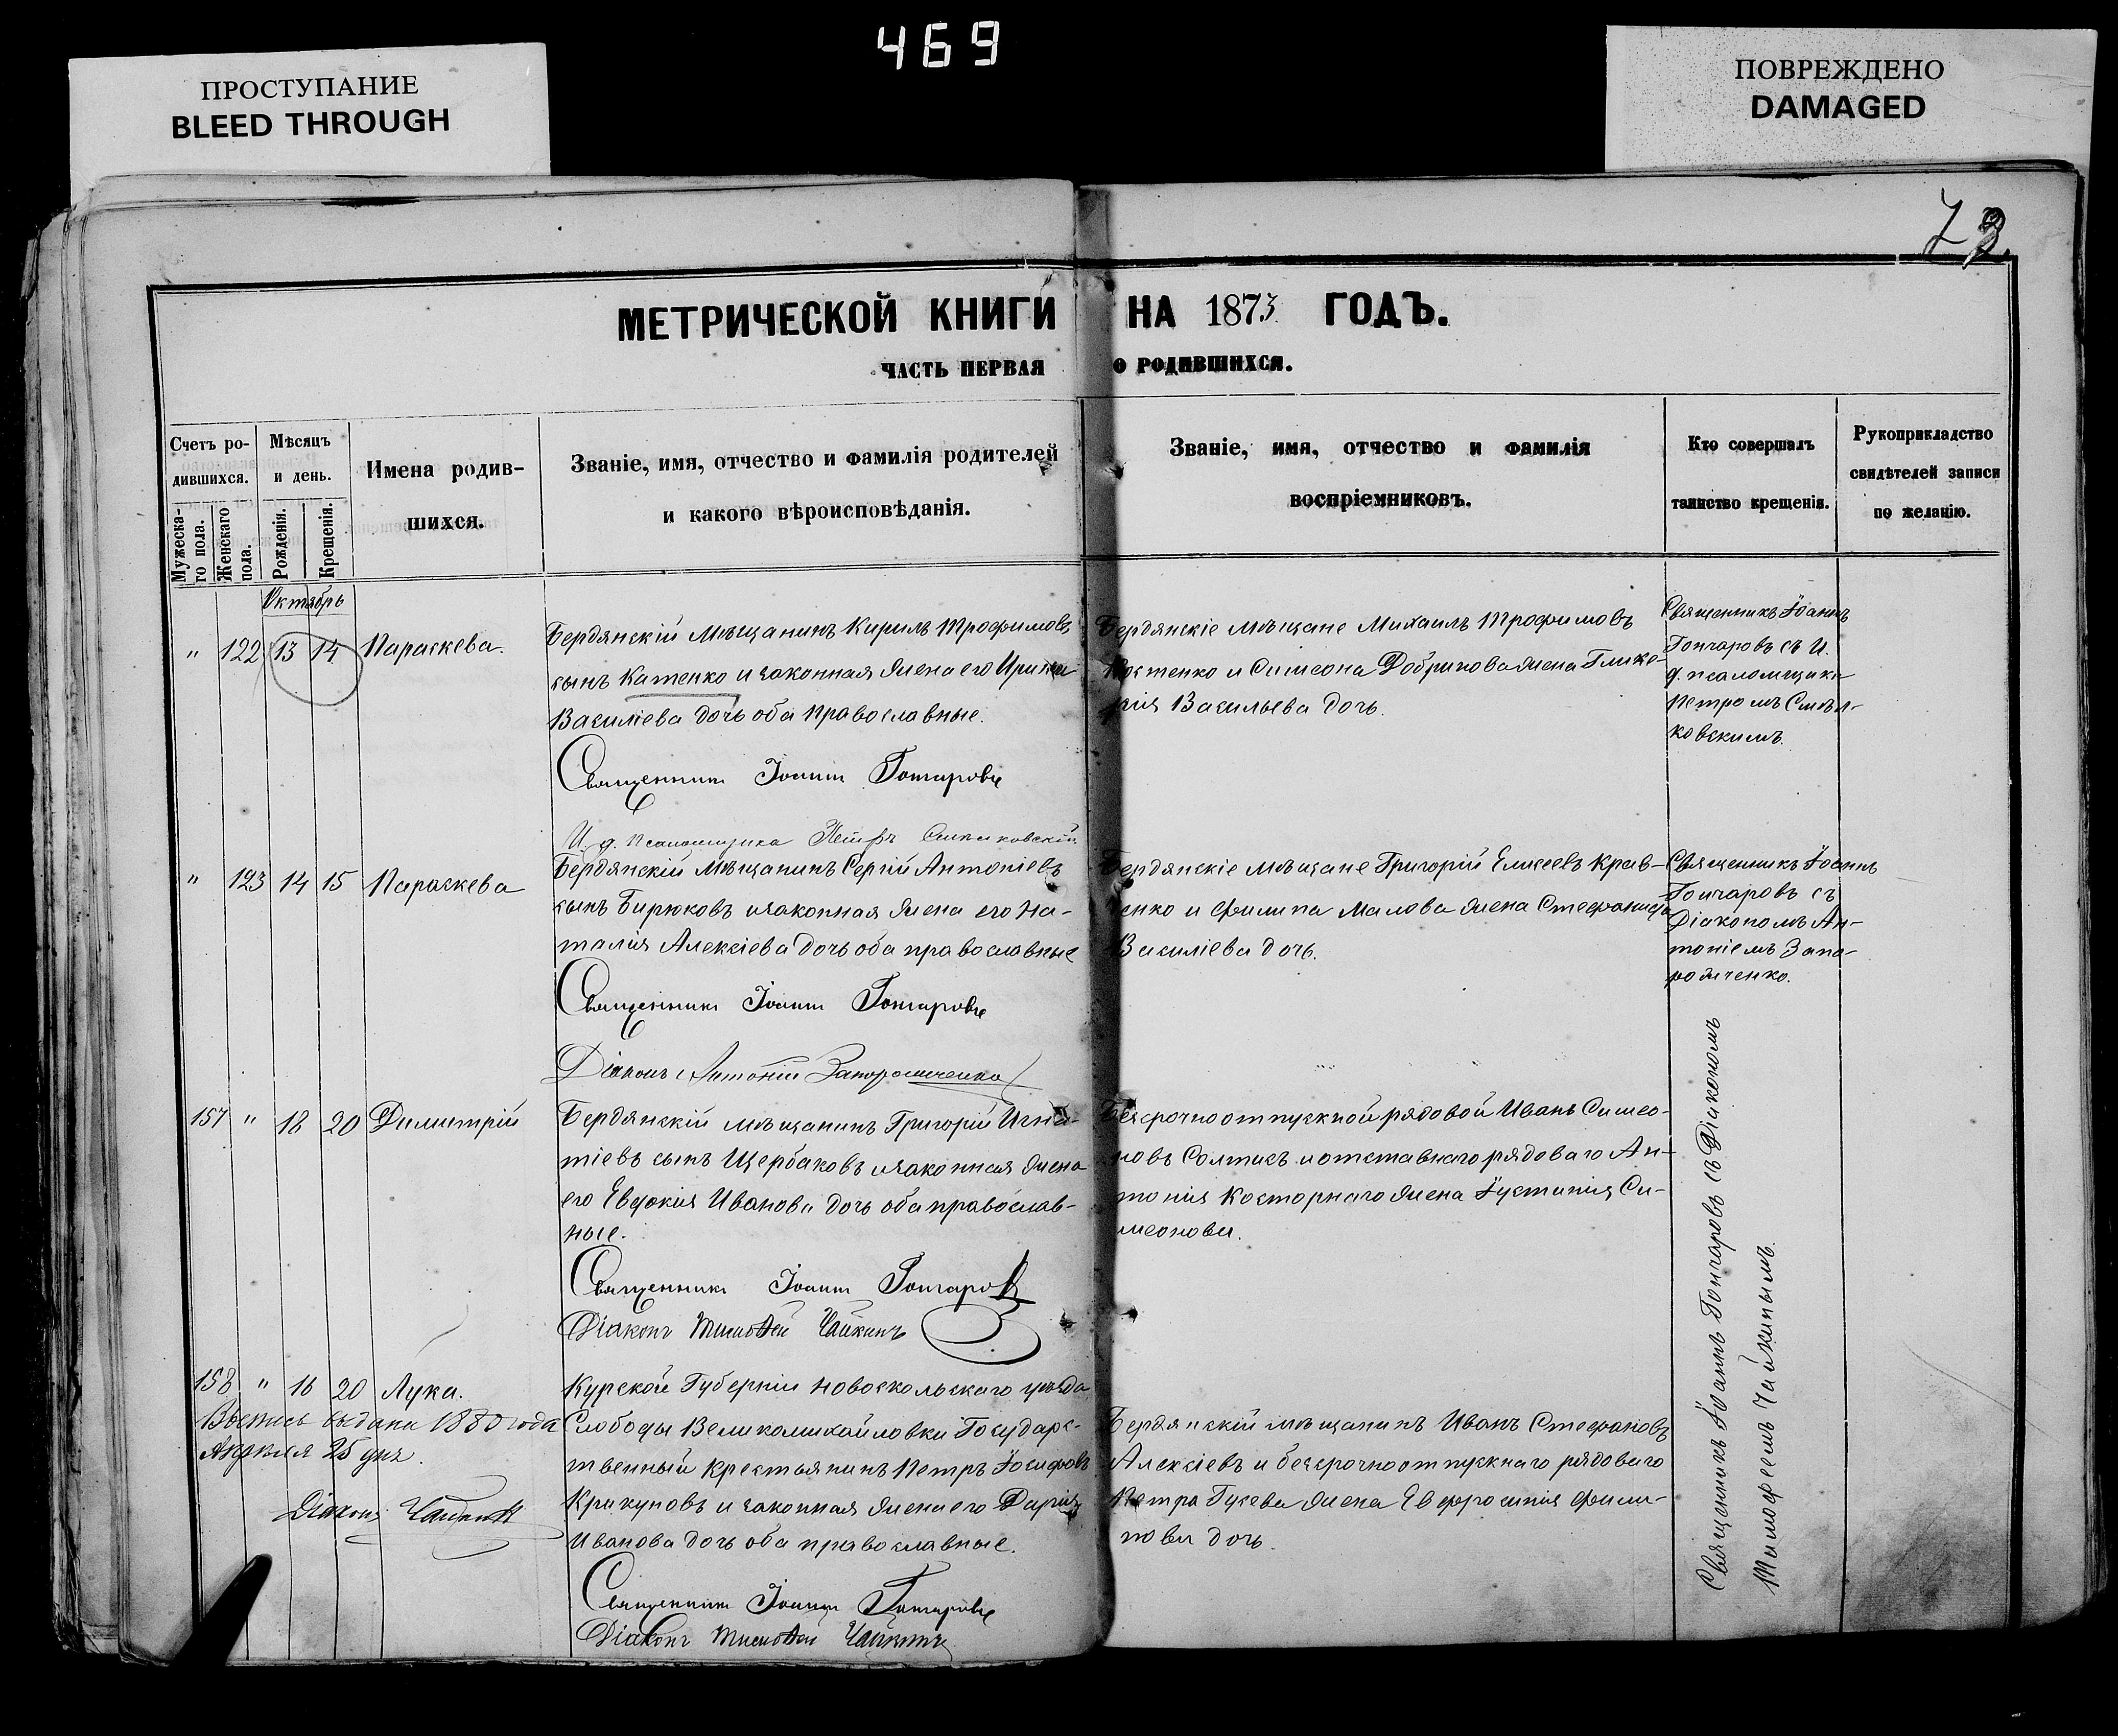 469
ПРОСТУПАНИЕ
BLEED THROUGH
ПОВРЕЖДЕНО
DAMAGED
МЕТРИЧЕСКОЙ КНИГИ НА 1873 ГОДЪ.
ЧАСТЬ ПЕРВАЯ О РОДИВШИХСЯ.
Счетъ ро-
дившихся.
Мужеска-
го пола.
Женскаго
пола.
Мѣсяцъ
и день.
Рожденія.
Крещенія.
Имена родив-
шихся.
Званіе, имя, отчество и фамилія родителей
и какого вѣроисповѣданія.
Званіе, имя, отчество и фамилія
воспріемниковъ.
Кто совершалъ
таинство крещенія.
Рукоприкладство
свидѣтелей записи
по желанію.
Октябрь
" 122 13 14 Параскева.
Бердянскій мѣщанинъ Кирилъ Трофимовъ
сынъ Катенко и законная жена его Ирина
Василіева дочь оба православные.
Священникъ Іоаннъ Гончаровъ
И. д. псаломщика Петръ
Бердянскіе мѣщане Михаилъ Трофимовъ
Костенко и Симеона Добрикова жена Глике-
рія Васильева дочь.
Священникъ Іоаннъ
Гончаровъ съ И.
д. псаломщика
Петромъ Смѣл-
ковскимъ.
" 123 14 15 Параскева
Бердянскій мѣщанинъ Сергій Антоніевъ
сынъ Бирюковъ и законная жена его На-
талія Алексіева дочь оба православные
Священникъ Іоаннъ Гончаровъ
Діаконъ Антоній Запорожченко
Бердянскіе мѣщане Григорій Елисеевъ Крав-
ченко и Филипа Малова жена Стефанида
Василіева дочь.
Священникъ Іоаннъ
Гончаровъ съ
Діакономъ Ан-
тоніемъ Запо-
рожченко.
157 " 18 20 Димитрій
Бердянскій мѣщанинъ Григорій Игна-
тіевъ сынъ Щербаковъ и законная жена
его Евдокія Иванова дочь оба православ-
ные.
Священникъ Іоаннъ Гончаровъ
Діаконъ Тимоѳей Чайкинъ
Безсрочноотпускной рядовой Иванъ Симео-
новъ Солтисъ и отставнаго рядоваго Ан-
тонія Косторнаго жена Іустинія Си-
меонова.
158 " 16 20 Лука.
Выпись выдана 1880 года
Апрѣля 25 дня.
Діаконъ Чайкинъ
Курской Губерніи Новоскольскаго уѣзда
Слободы Великомихайловки Государс-
твенный крестьянинъ Петръ Іосифовъ
Крикуновъ и законная жена его Дарія
Иванова дочь оба православные.
Священникъ Іоаннъ Гончаровъ
Діаконъ Тимоѳей Чайкинъ
Бердянскій мѣщанинъ Иванъ Стефановъ
Алексіевъ и безсрочноотпускнаго рядоваго
Петра Гусева жена Евфросинія Фили-
пова дочь.
Священникъ Іоаннъ Гончаровъ съ Діакономъ
Тимофеемъ Чайкинымъ.